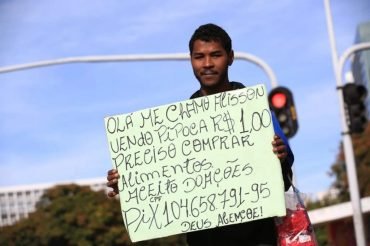 OLÁ ME CHAMO ALISSON
VENDO PIPOCA R$ 1,00
PRECISO COMPRAR
ALIMENTOS
ACEITO DOAÇÕES
EM
PIX 104.658.791-95
DEUS ABENÇOE!